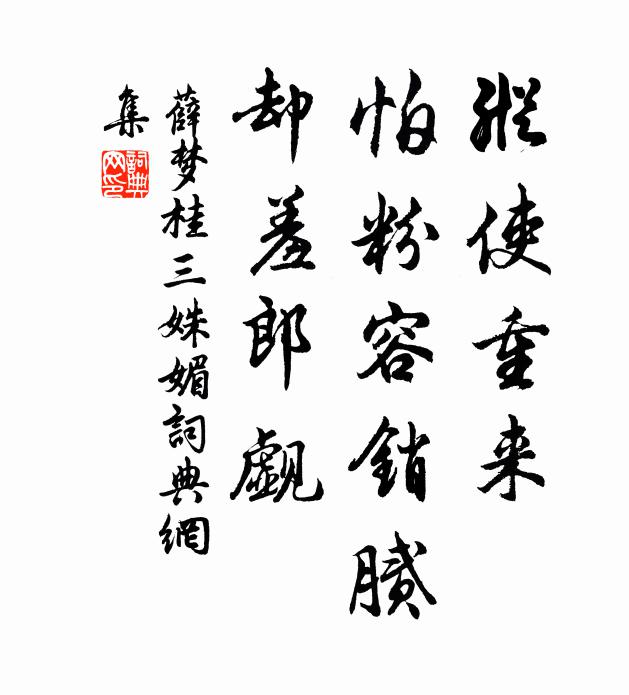 縱使重来
怕粉容銷膩
却羞郎覷
薛梦桂三姝媚詞典網
集
詞典網印